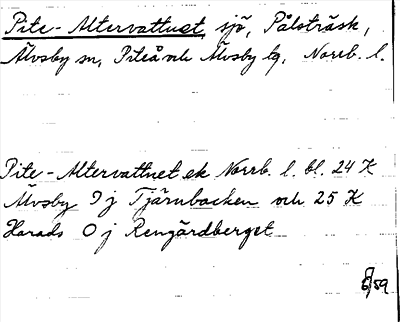 Pite-Altervattnet, sjö, Pålsträsk,
Älvsby sn, Piteå och Älvsby tg, Norrb. l.
Pite-Altervattnet ek Norrb. l. bl. 24 K
Älvsby 9 j Tjärnbacken och 25 K
Harads 0 j Rengårdberget
/59